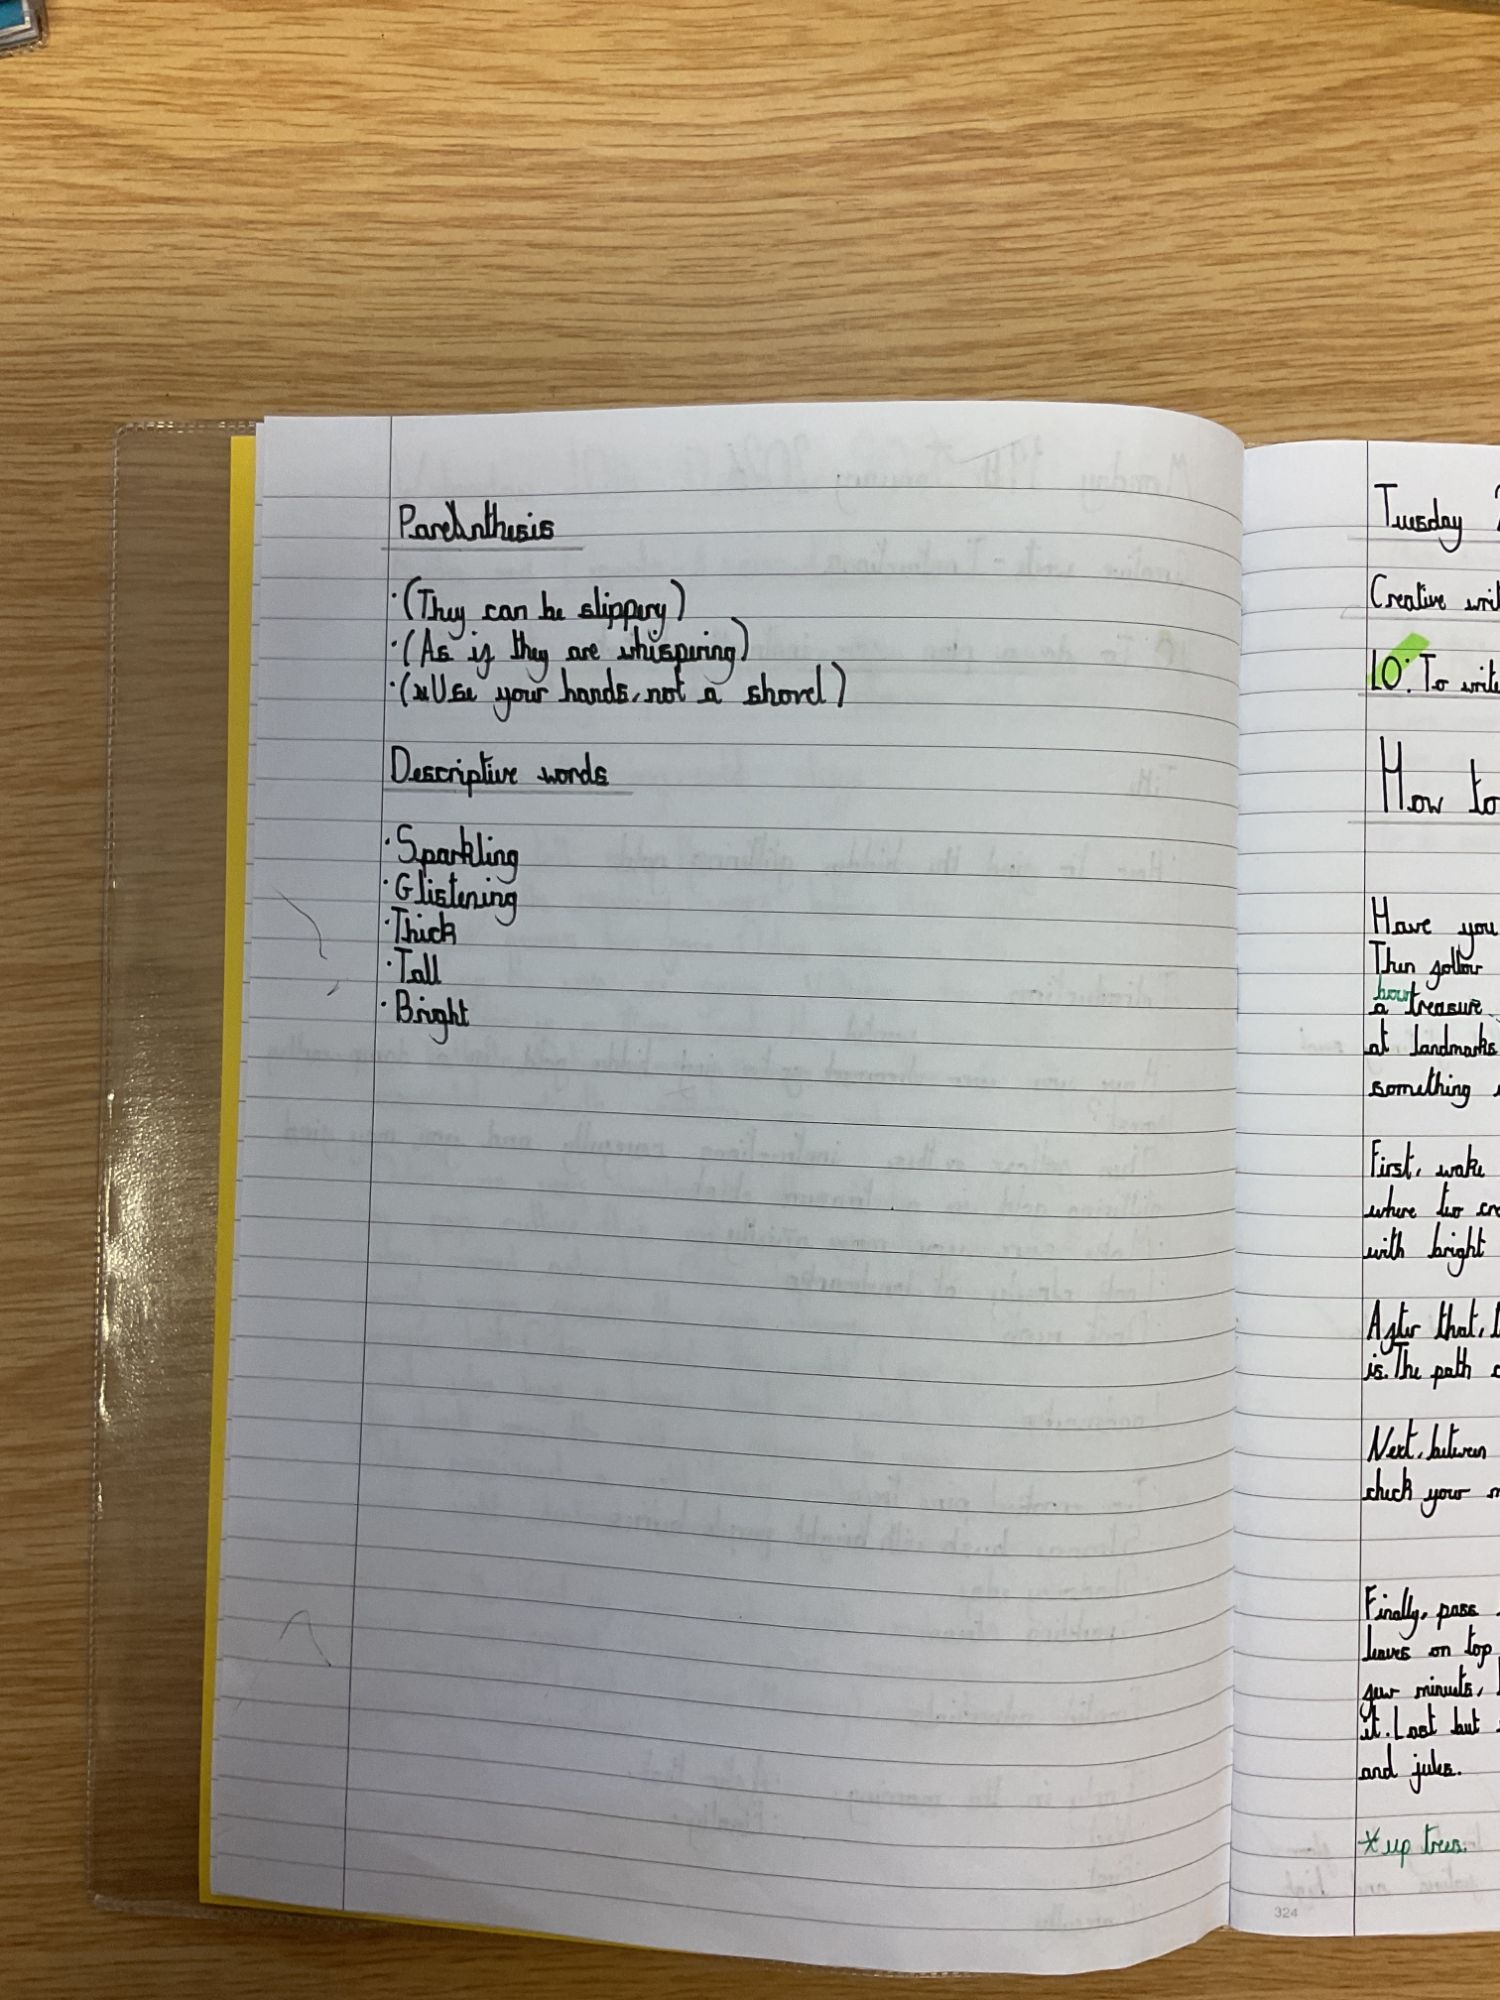 Parenthesis
·(They can be slippery)
·(As if they are whispering)
·(Use your hands, not a shovel)
Descriptive words
·Sparkling
·Glistening
·Thick
·Tall
·Bright
Tuesday
Creative
LO: To write
How to
Have you
Then follow
a treasure.
at landmarks
something
First, wake
where two
with bright
After that,
is. The path
Next, between
check your
Finally, pass
leaves on top
few minutes,
it. Last but
and jules.
*up trees.
324